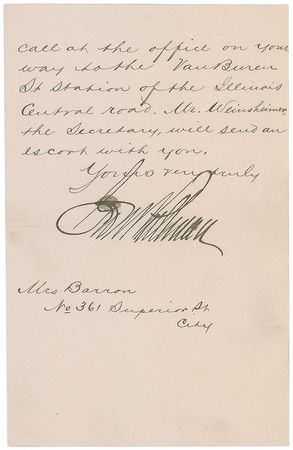 call at the office on your
way to the Van Buren
St station of the Illinois
Central road. Mr. Weinsheimer
the Secretary, will send an
escort with you.
Yours very truly
Geo M Pullman
Mrs Barron
No 361 Superior St
City